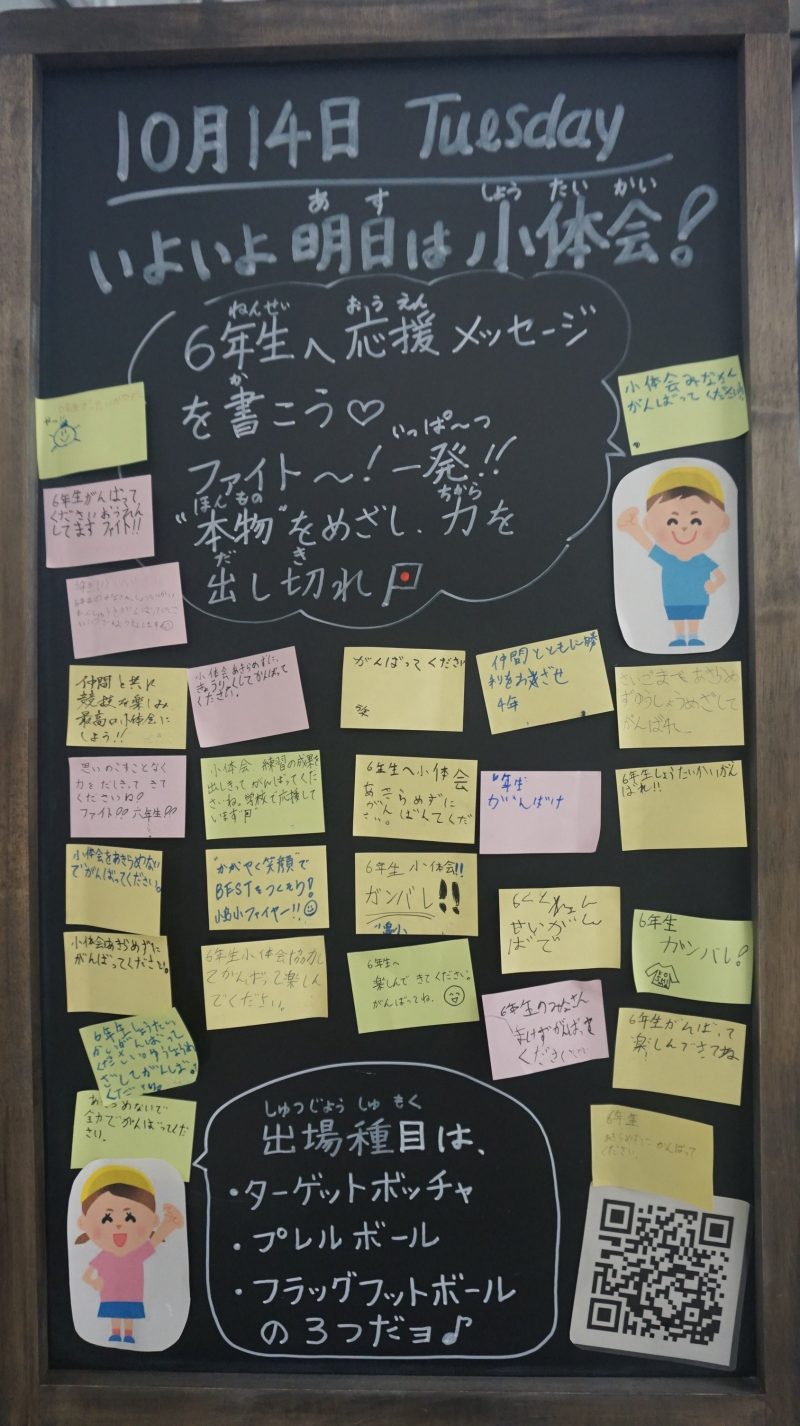 10月14日 Tuesday
あす しょう たい かい
いよいよ明日は小体会!
ねんせい おうえん
6年生へ応援メッセージ
か
を書こう♡
いっぱ〜つ
ファイト〜!一発!!
ほんもの ちから
"本物"をめざし、力を
だ き
出し切れ
小体会みなさん
がんばってください!
6年生がんばって
くださいおうえん
してます ファイト!!
仲間と共に
競技を楽しみ
最高の小体会に
しよう!!
小体会あきらめずに、
きょうりょくしてがんばって
ください。
がんばってください
仲間とともに勝
利をお
4年
さいごまであきらめ
ずゆうしょうめざして
がんばれ
思いのこすことなく
力をだしきってきて
くださいね!
ファイト!! 六年生!!
小体会 練習の成果を
出しきってがんばってくだ
さいね。学校で応援して
います
6年生へ小体会
あきらめずに
がんばってくだ
さい。
年生
がんばけ
6年生しょうたいかいがん
ばれ!!
小体会をあきらめない
でがんばってください。
"かがやく笑顔"で
BESTをつくそう!
ファイヤー!!
6年生 小体会!!
ガンバレ!!
せいがん
ばで
6年生
ガンバレ!
小体会あきらめずに
がんばってください。
6年生小体会協力し
てがんばって楽しん
でください。
6年生へ
楽しんできてください。
がんばってね。
6年生のみなさん
まけずがんばって
ください
6年生がんばって
楽しんできてね
6年生しょうたい
かいがんばって
ください。ゆうしょうめ
ざしてがんば
ください。
あきらめないで
全力でがんばってくだ
さい。
6年生
あきらめずにがんばって
ください。
しゅつじょう しゅ もく
出場種目は、
・ターゲットボッチャ
・プレルボール
・フラッグフットボール
の3つだョ♪